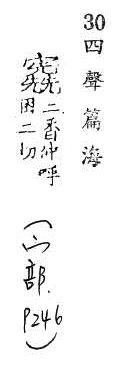 30四聲篇海
二香仲呼
困二切
(宀部.P246)